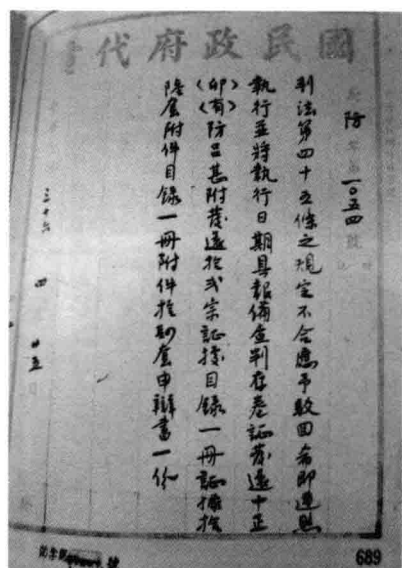 國民政府代電
防字第一〇五四號
刑法第四十五條之規定不合應予駁回希即遵照
執行並將執行日期具報備查判存卷證發還中正
(卯)(有)防呂甚附發還拴弍宗証據目錄一冊証據拴
隨呈附件目錄一冊附件拴劉奎申辯書一份
三十六 四 廿五日
689